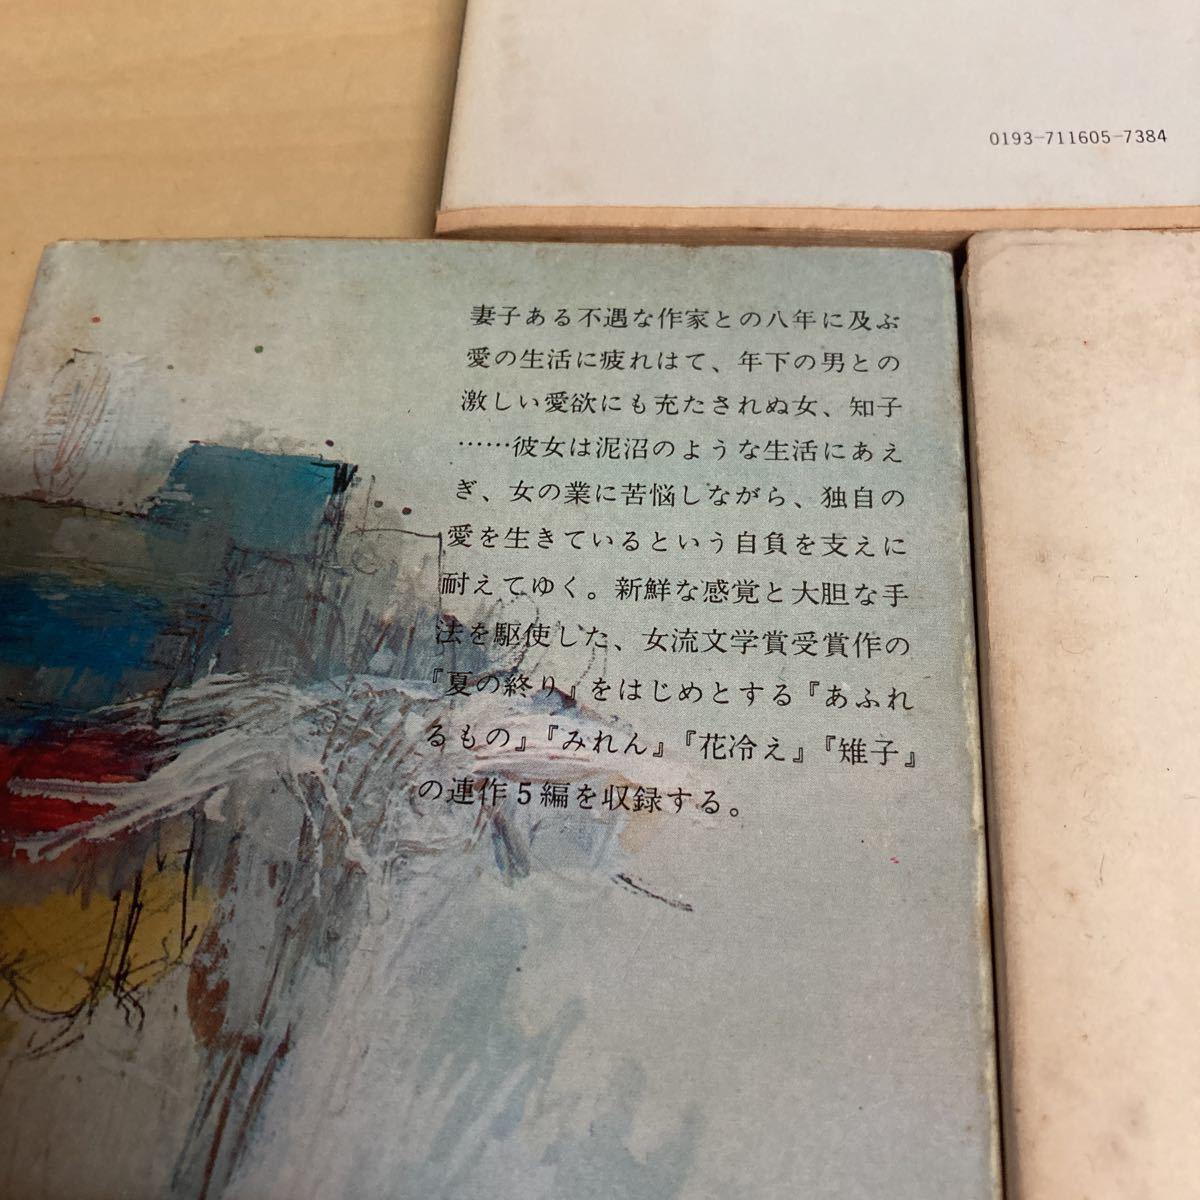 0193-711605-7384
妻子ある不遇な作家との八年に及ぶ
愛の生活に疲れはて、年下の男との
激しい愛欲にも充たされぬ女、知子
……彼女は泥沼のような生活にあえ
ぎ、女の業に苦悩しながら、独自の
愛を生きているという自負を支えに
耐えてゆく。新鮮な感覚と大胆な手
法を駆使した、女流文学賞受賞作の
『夏の終り』をはじめとする『あふれ
るもの』『みれん』『花冷え』『雉子』
の連作5編を収録する。